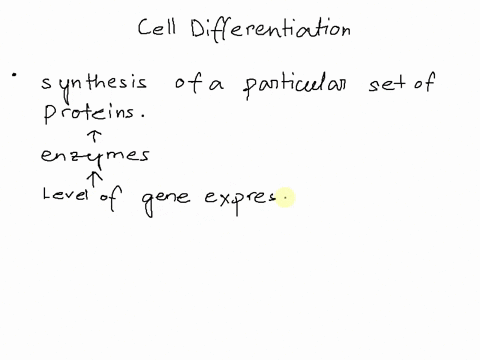 Cell Differentiation
• synthesis of a particular set of
proteins.
↑
enzymes
↑
Level of gene expres